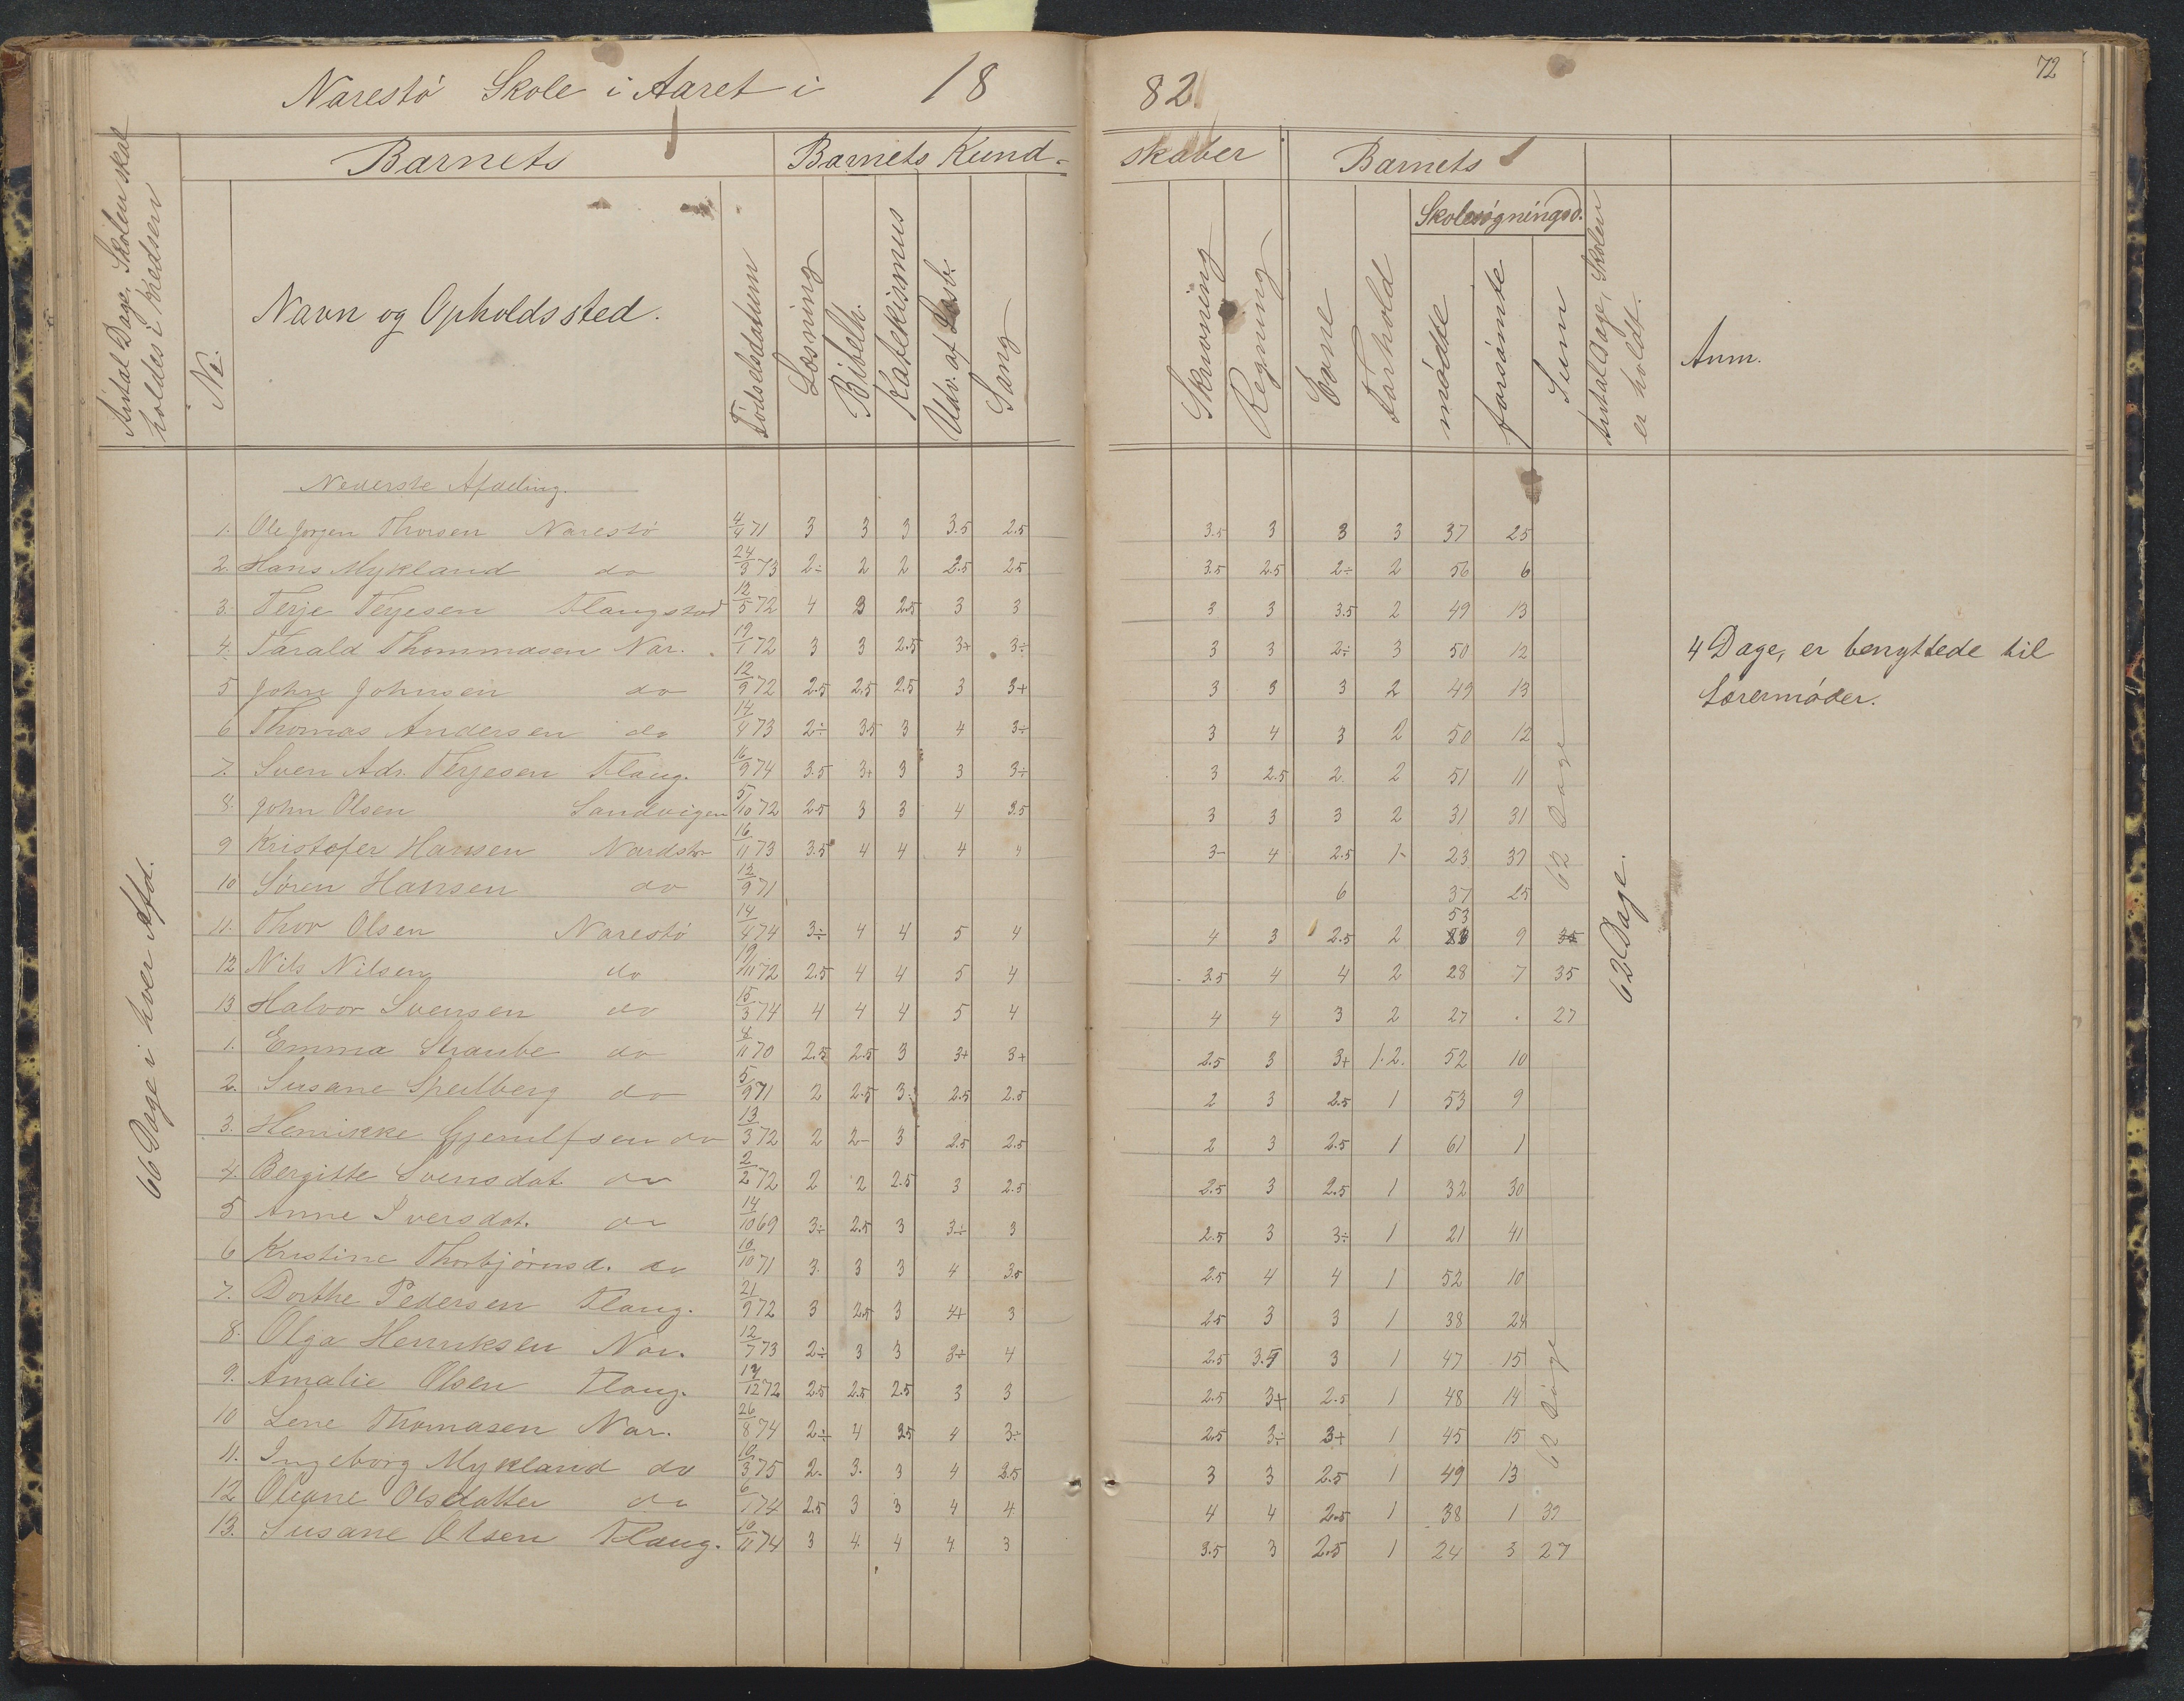 72
Narestö Skole i Aaret i 1882.
Antal Dage, Skolen skal holdes i Kredsene
No.
Barnets
Navn og Opholdssted.
Födselsdatum
Barnets Kundskaber
Læsning
Bibelh.
Katekismus
Udv. af Læseb.
Sang
Skrivning
Regning
Barnets
Evne
Forhold
Skolesøgningsd.
mödte
forsömte
Sum
Antal Dage, Skolen er holdt.
Anm.
Nederste Afdeling.
1. Ole Jorgen Thorsen Narestö 4/4 71 3 3 3 3.5 2.5 3.5 3 3 3 37 25
2. Hans Mykland do 24/3 73 2÷ 2 2 2.5 2.5 3.5 2.5 2÷ 2 56 6
3. Terje Terjesen Flangstad 12/5 72 4 3 2.5 3 3 3 3 3.5 2 49 13
4. Tarald Thommasen Nar. 19/1 72 3 3 2.5 3+ 3÷ 3 3 2÷ 3 50 12
5 John Johnsen do 12/9 72 2.5 2.5 2.5 3 3+ 3 3 3 2 49 13
6 Thomas Andersen do 14/4 73 2÷ 3.5 3 4 3÷ 3 4 3 2 50 12
7. Sven Adr. Terjesen Flang. 16/9 74 3.5 3+ 3 3 3÷ 3 2.5 2. 2 51 11
8. John Olsen Sandvigen 5/10 72 2.5 3 3 4 3.5 3 3 3 2 31 31
9 Kristofer Hansen Nardstø 16/11 73 3.5 4 4 4 4 3- 4 2.5 1- 23 39
10 Søren Hansen do 12/9 71 6 37 25
11. Thor Olsen Narestö 14/4 74 3÷ 4 4 5 4 4 3 2.5 2 53 9 35
12 Nils Nilsen do 19/11 72 2.5 4 4 5 4 3.5 4 4 2 28 7 35
13 Halvor Svensen do 15/3 74 4 4 4 5 4 4 4 3 2 27 . 27
1. Emma Straube do 8/11 70 2.5 2.5 3 3+ 3+ 2.5 3 3+ 1.2. 52 10
2. Susane Speilberg do 5/9 71 2 2.5 3÷ 2.5 2.5 2 3 2.5 1 53 9
3. Henrikke Gjerulfsen do 13/3 72 2 2- 3 2.5 2.5 2 3 2.5 1 61 1
4. Bergitte Svensdat. do 2/2 72 2 2 2.5 3 2.5 2.5 3 2.5 1 32 30
5 Anne Iversdat. do 14/10 69 3÷ 2.5 3 3÷ 3 2.5 3 3÷ 1 21 41
6 Kristine Thorbjörnsd. do 10/10 71 3. 3 3 4 3.5 2.5 4 4 1 52 10
7. Dorthe Pedersen Flang. 21/9 72 3 2.5 3 4+ 3 2.5 3 3 1 38 24
8. Olga Henriksen Nar. 12/7 73 2÷ 3 3 3+ 4 2.5 3.5 3 1 47 15
9. Amalie Olsen Flang. 14/12 72 2.5 2.5 2.5 3 3 2.5 3+ 2.5 1 48 14
10 Lene Thomasen Nar. 26/8 74 2÷ 4 3.5 4 3÷ 2.5 3÷ 3+ 1 45 15
11. Ingeborg Mykland do 10/3 75 2. 3. 3 4 3.5 3 3 2.5 1 49 13
12 Oleane Olsdatter do 6/1 74 2.5 3 3 4 4. 4 4 2.5 1 38 1 39
13. Susane Olsen Flang. 10/11 74 3 4. 4 4 3 3.5 3 2.5 1 24 3 27
66 Dage i hver Afd.
62 Dage
62 Dage
62 Dage.
4 Dage, er benyttede til
Lærermöder.